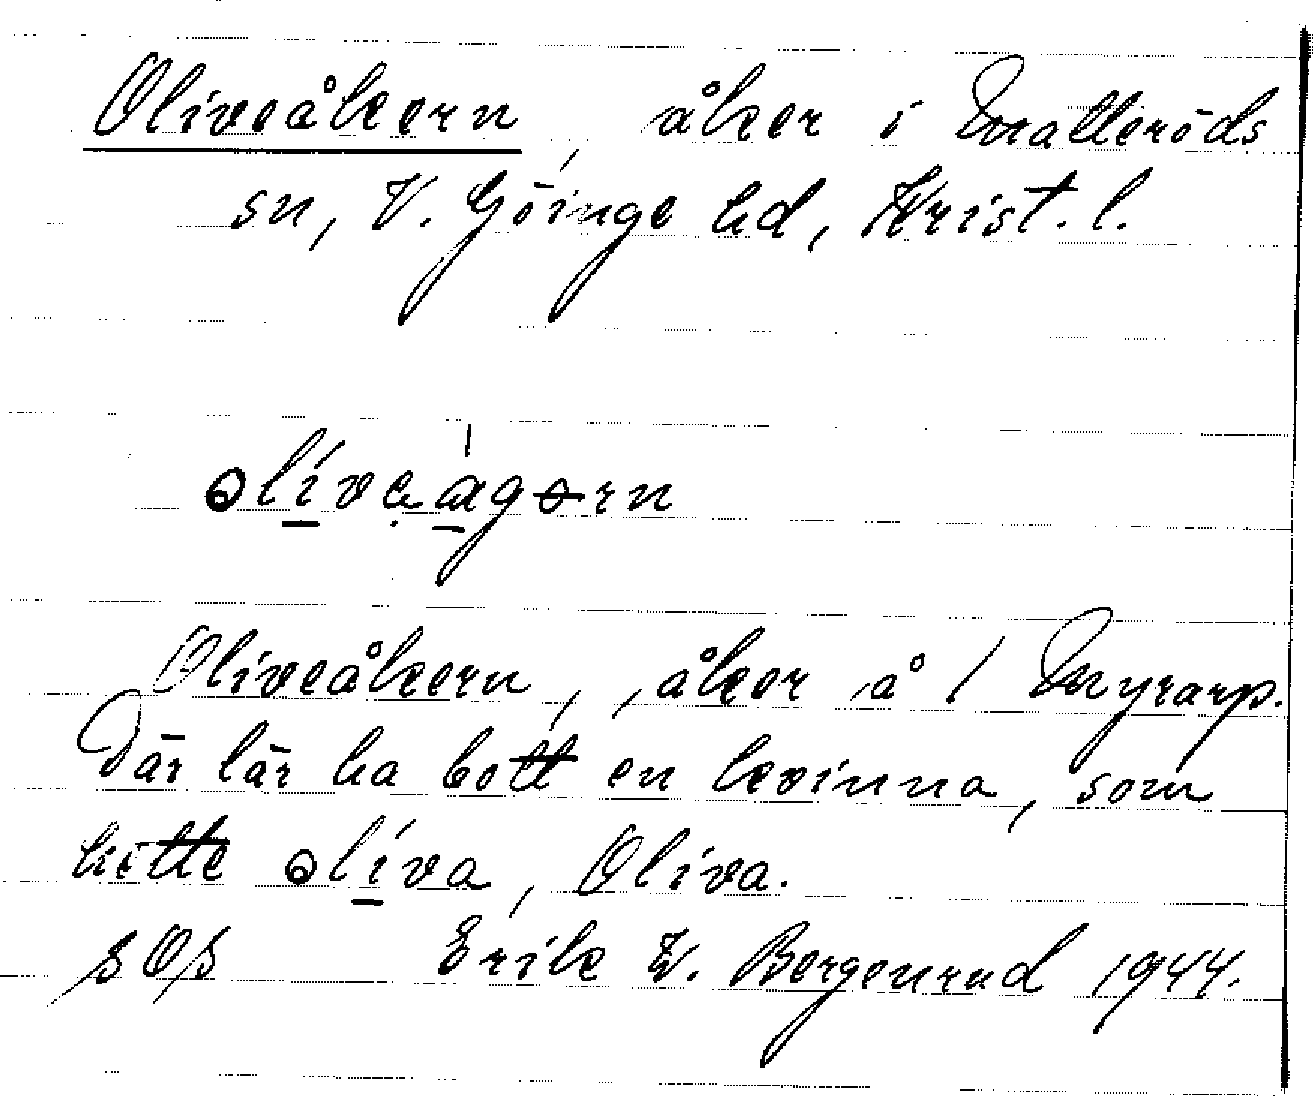 Oliveåkern, åker i Matteröds
sn, V. Göinge hd, Krist. l.
olíveágɵrn
Oliveåkern, åker å 1 Myrarp.
Där lär ha bott en kvinna, som
hette olíva, Oliva.
sOs Erik W. Bergenrud 1944.